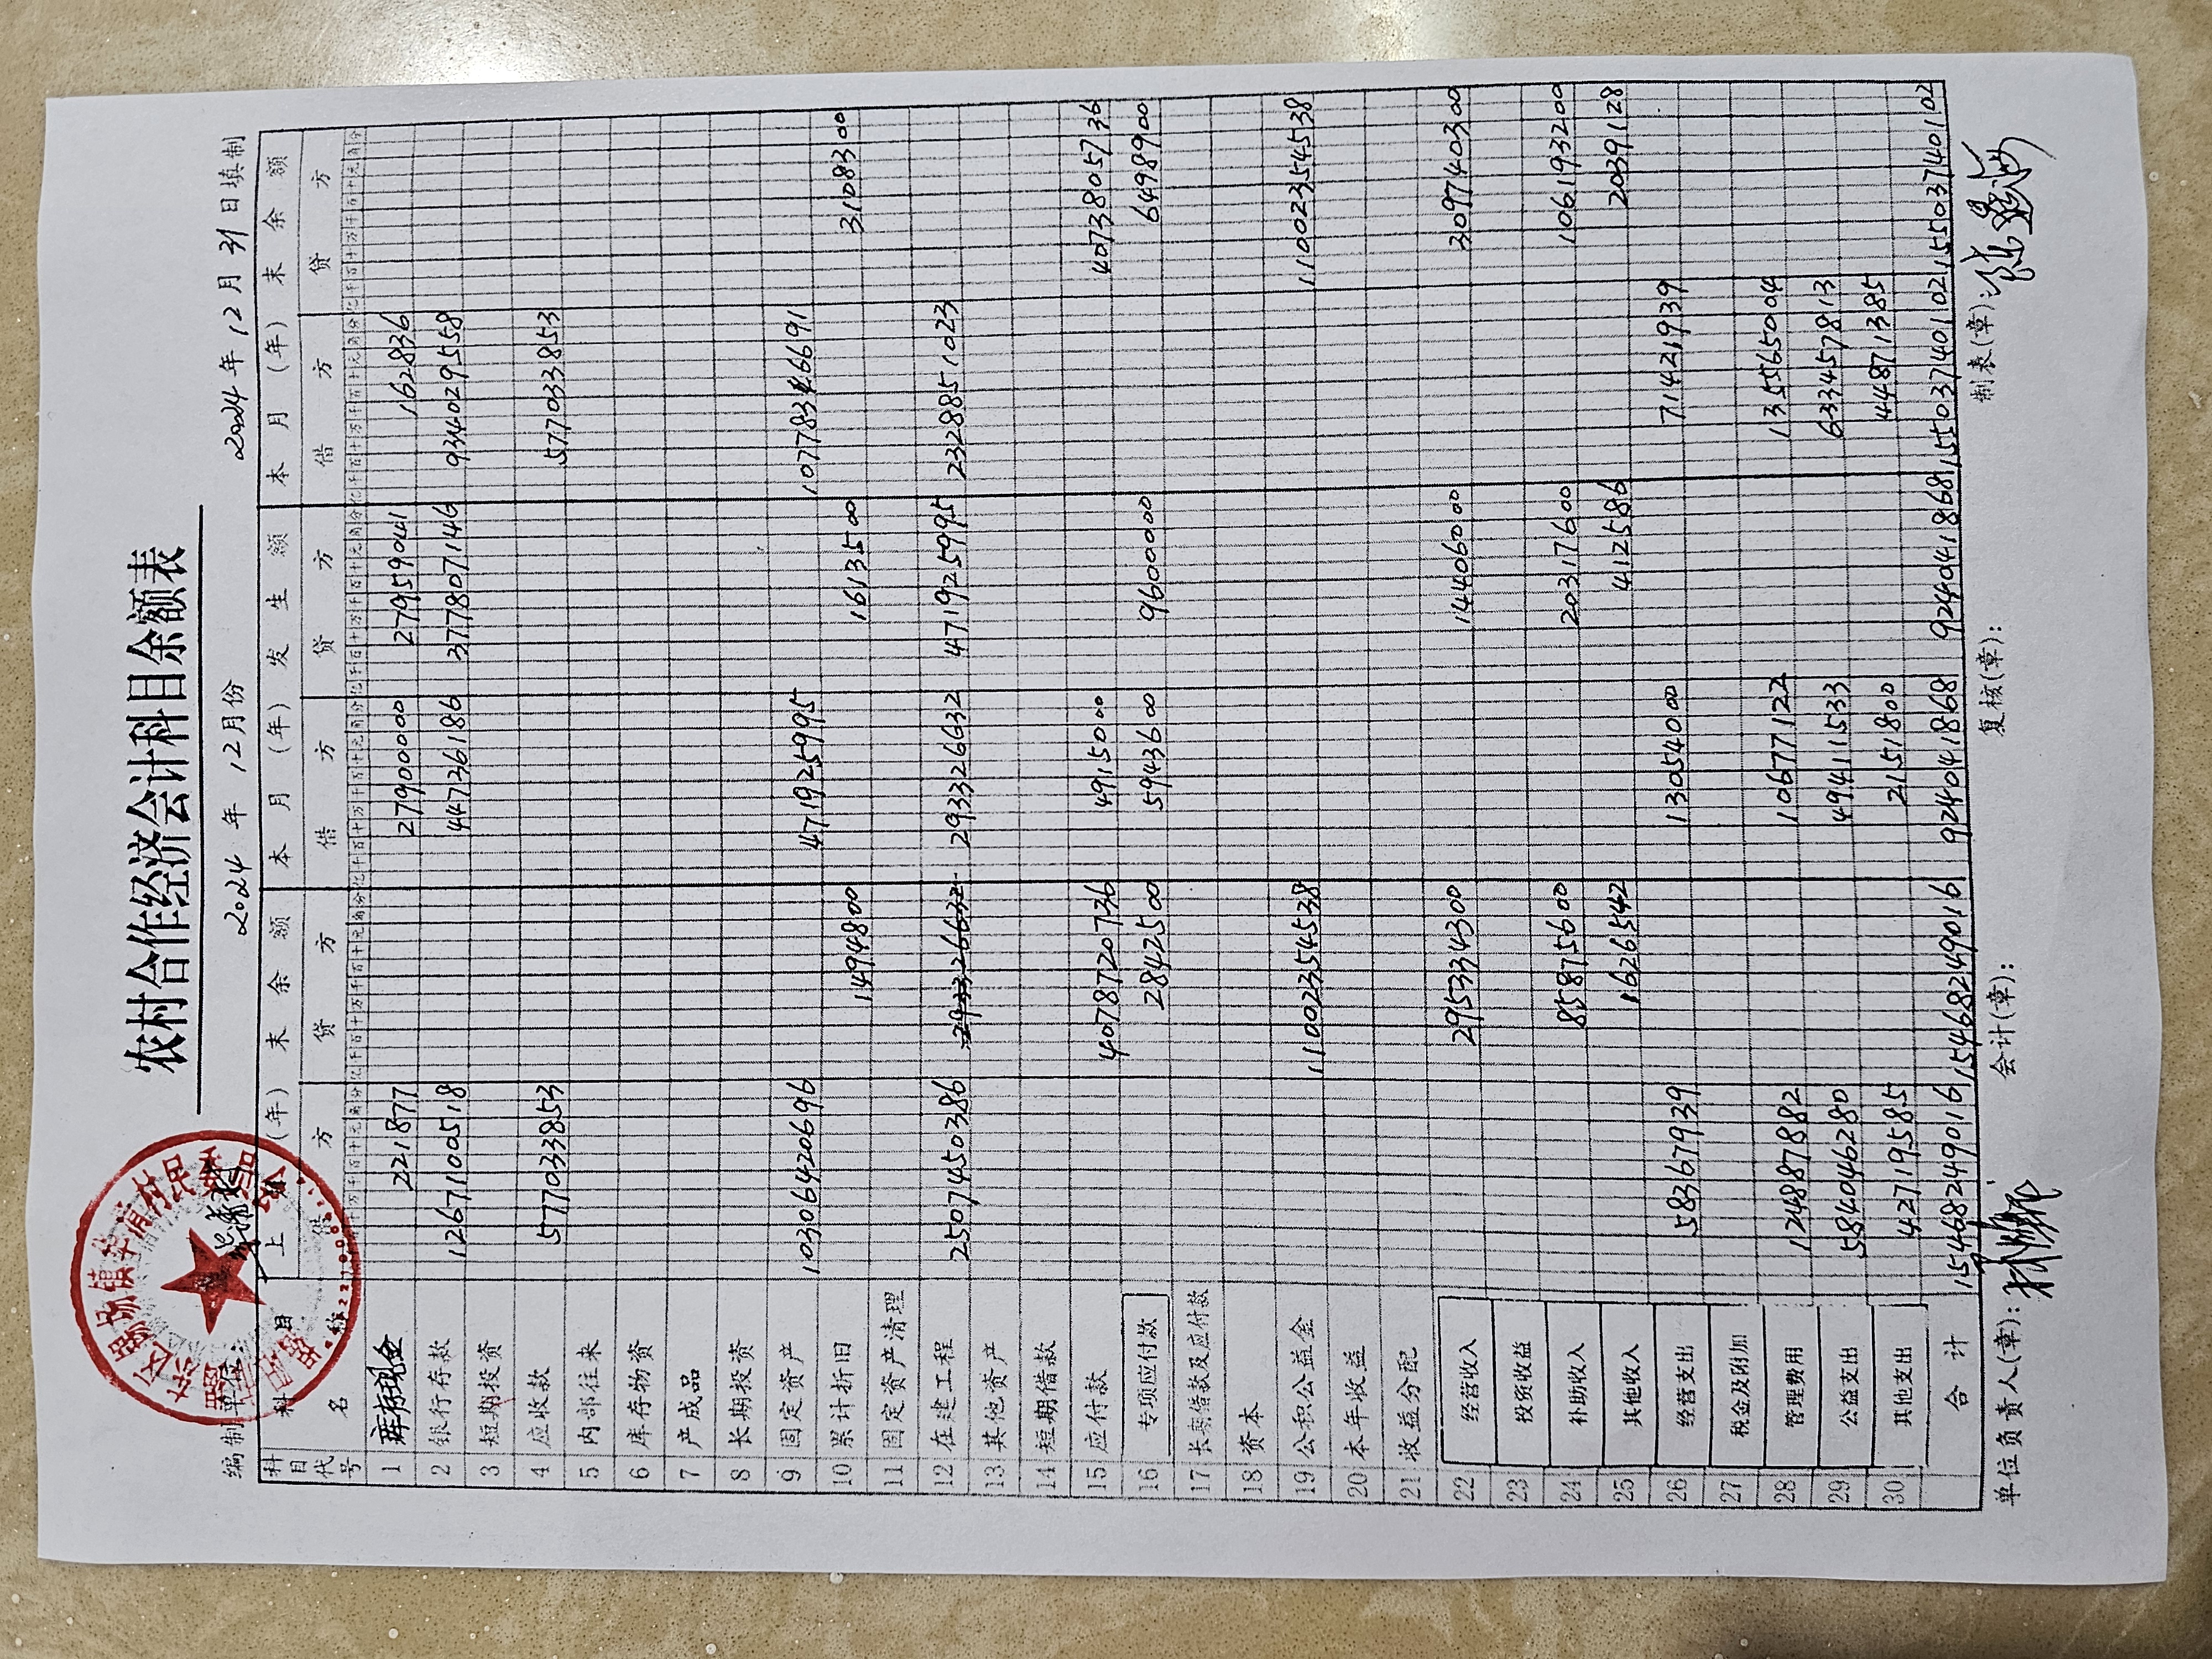 农村合作经济会计科目余额表
编制单位: 2024年12月份 2024年12月31日填制
科目代号 科目名称 上月(年)末余额 本月(年)发生额 本月(年)末余额
借方 贷方 借方 贷方 借方 贷方
亿千百十万千百十元角分 亿千百十万千百十元角分 亿千百十万千百十元角分 亿千百十万千百十元角分 亿千百十万千百十元角分 亿千百十万千百十元角分
1 库存现金 221877 27900000 27959041 162836
2 银行存款 1267100518 44736186 377807146 934029558
3 短期投资
4 应收款 577033853 577033853
5 内部往来
6 库存物资
7 产成品
8 长期投资
9 固定资产 10306420696 471925995 10778346691
10 累计折旧 1494800 1613500 3108300
11 固定资产清理
12 在建工程 2507450386 293326632 293326632 471925995 2328851023
13 其他资产
14 短期借款
15 应付款 4078720736 4915000 4073805736
16 专项应付款 2842500 5943600 9600000 6498900
17 长期借款及应付款
18 资本
19 公积公益金 11002354538 11002354538
20 本年收益
21 收益分配
22 经营收入 295334300 14406000 309740300
23 投资收益
24 补助收入 85875600 20317600 106193200
25 其他收入 1626542 412586 2039128
26 经营支出 58367939 13054000 71421939
27 税金及附加
28 管理费用 124887882 10677122 135565004
29 公益支出 584046280 49411533 633457813
30 其他支出 42719585 2151800 44871385
合计 15468249016 15468249016 924041868 924041868 15503740102 15503740102
单位负责人(章): 会计(章): 复核(章): 制表(章):